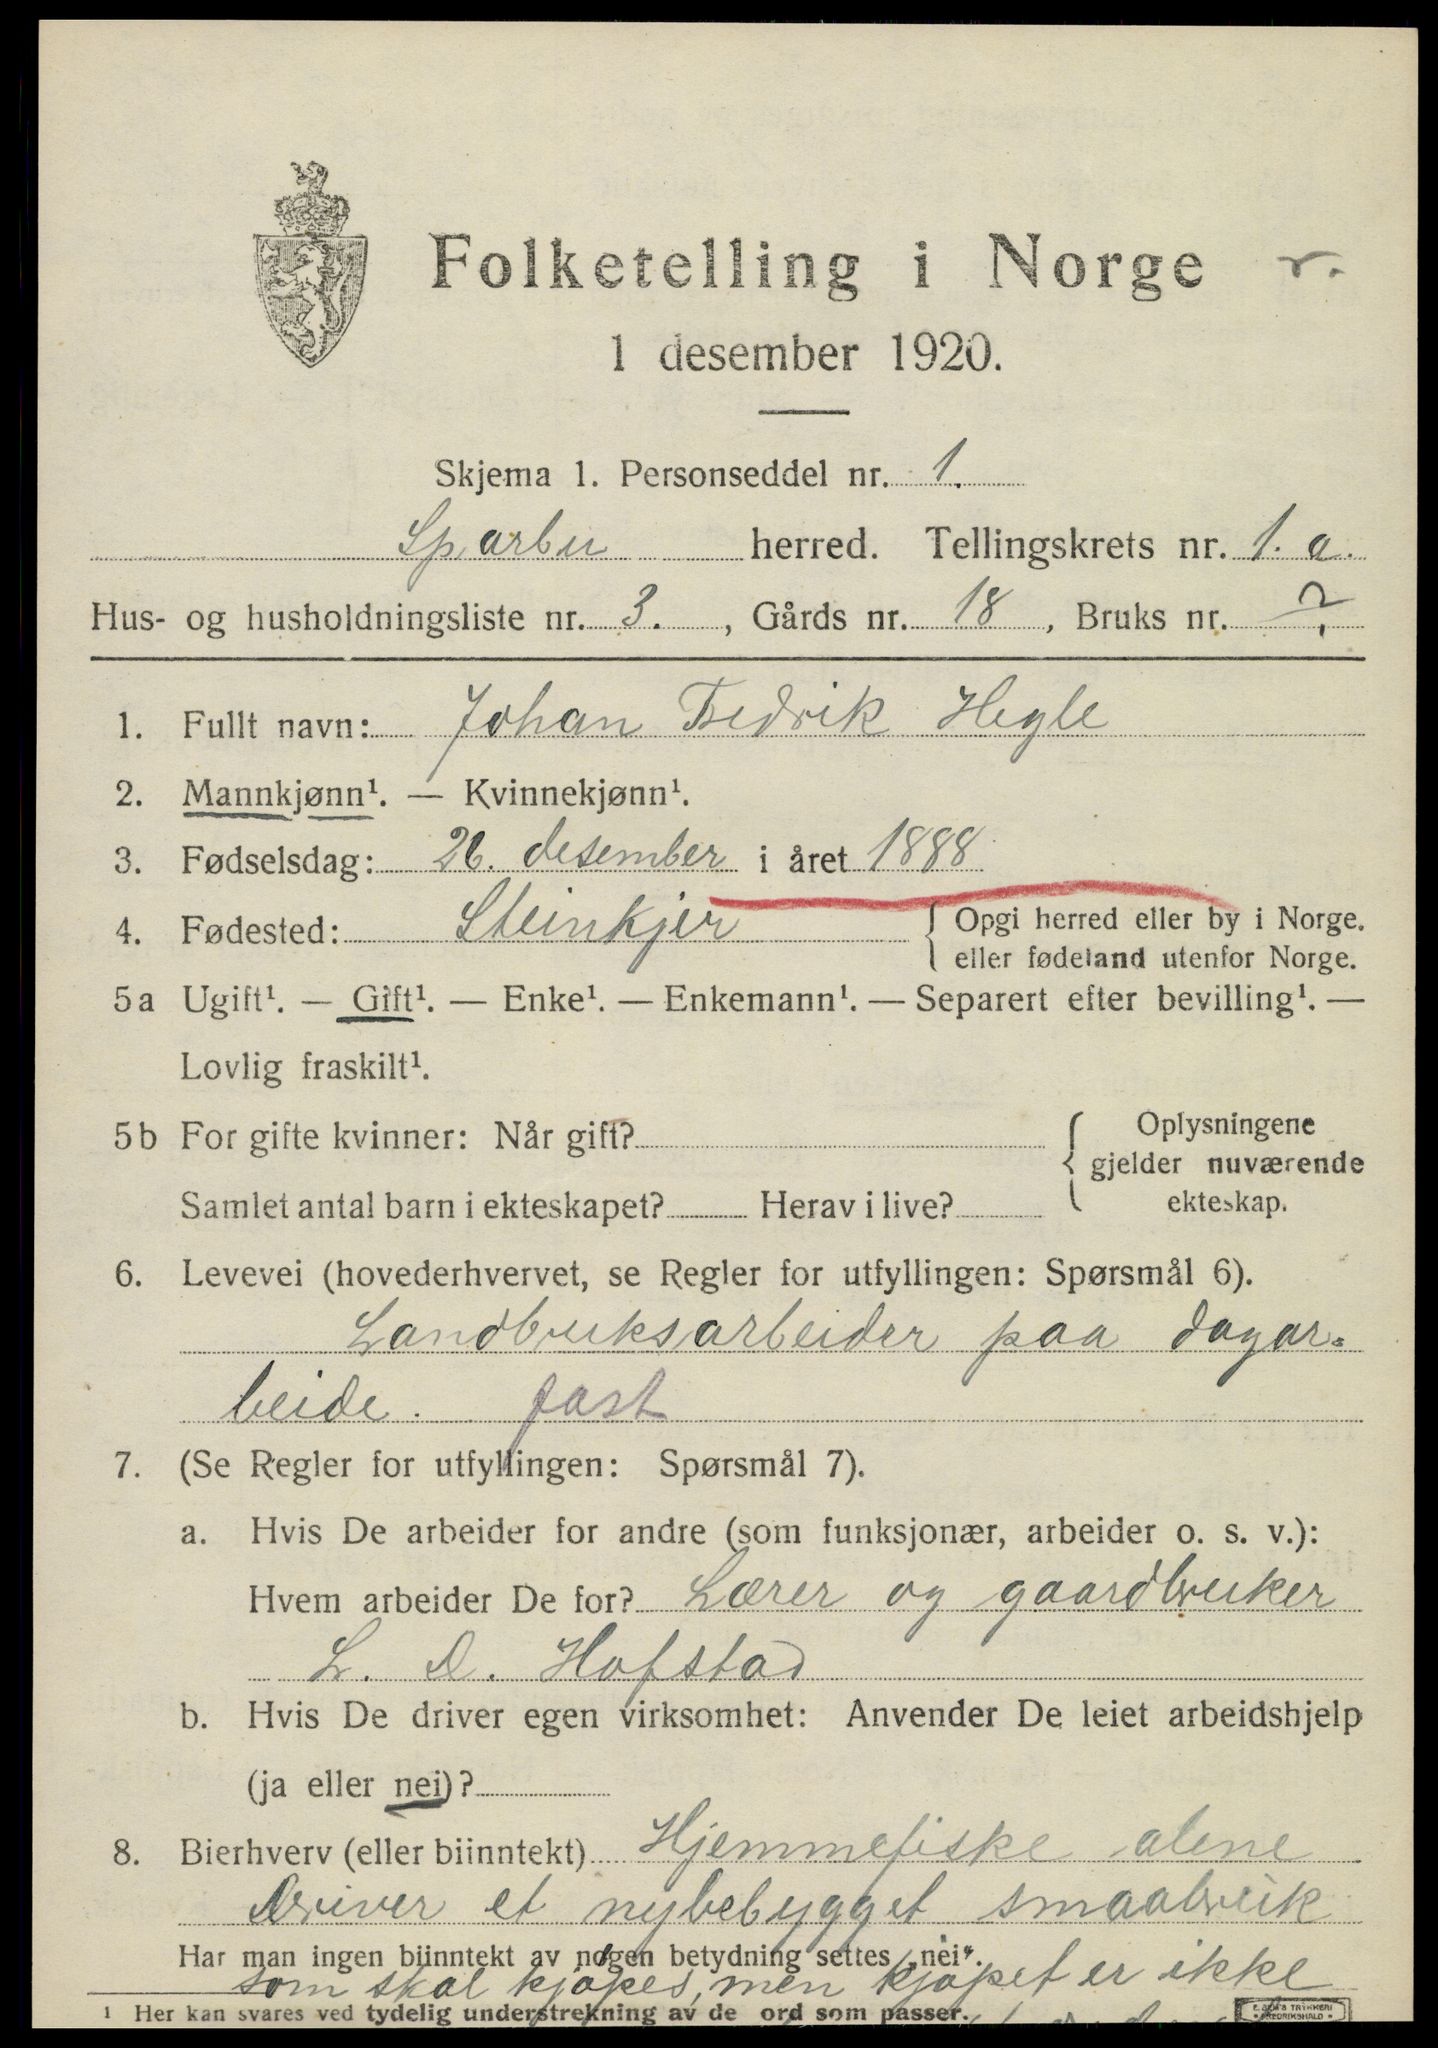 Folketelling i Norge
1 desember 1920.
Skjema 1. Personseddel nr. 1.
Sparbu herred. Tellingskrets nr. 1. a.
Hus- og husholdningsliste nr. 3. , Gårds nr. 18 , Bruks nr. ?
1. Fullt navn: Johan Fredrik Hegle
2. Mannkjønn¹. — Kvinnekjønn¹.
3. Fødselsdag: 26. desember i året 1888
4. Fødested: Steinkjer { Opgi herred eller by i Norge.
eller fødeland utenfor Norge.
5 a Ugift¹. — Gift¹. — Enke¹. — Enkemann¹. — Separert efter bevilling¹. —
Lovlig fraskilt¹.
5 b For gifte kvinner: Når gift? { Oplysningene
gjelder nuværende
Samlet antal barn i ekteskapet? Herav i live? ekteskap.
6. Levevei (hovederhvervet, se Regler for utfyllingen: Spørsmål 6).
Landbruksarbeider paa dagar-
beide. fast
7. (Se Regler for utfyllingen: Spørsmål 7).
a. Hvis De arbeider for andre (som funksjonær, arbeider o. s. v.):
Hvem arbeider De for? Lærer og gaardbruker
L. D. Hofstad
b. Hvis De driver egen virksomhet: Anvender De leiet arbeidshjelp
(ja eller nei)?
8. Bierhverv (eller biinntekt) Hjemmefiske alene
Driver et nybebygget smaabruk
Har man ingen biinntekt av nogen betydning settes „nei".
som skal kjøpes, men kjøpet er ikke
¹ Her kan svares ved tydelig understrekning av de ord som passer.